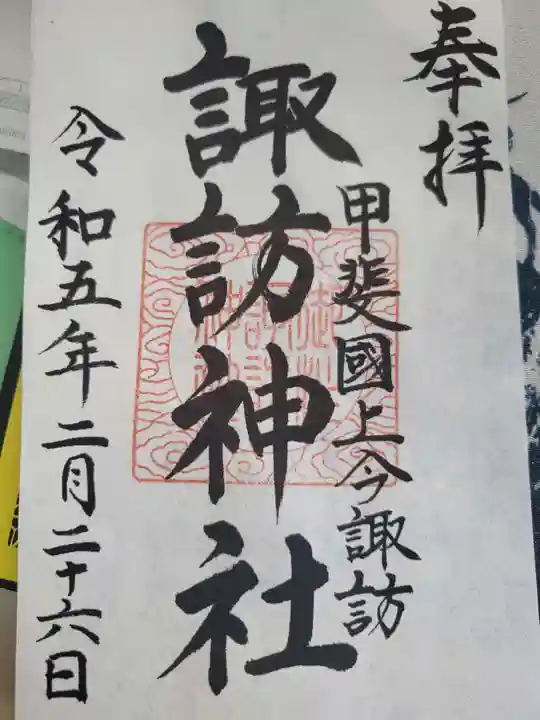 奉拝
甲斐國上今諏訪
諏訪神社
令和五年二月二十六日